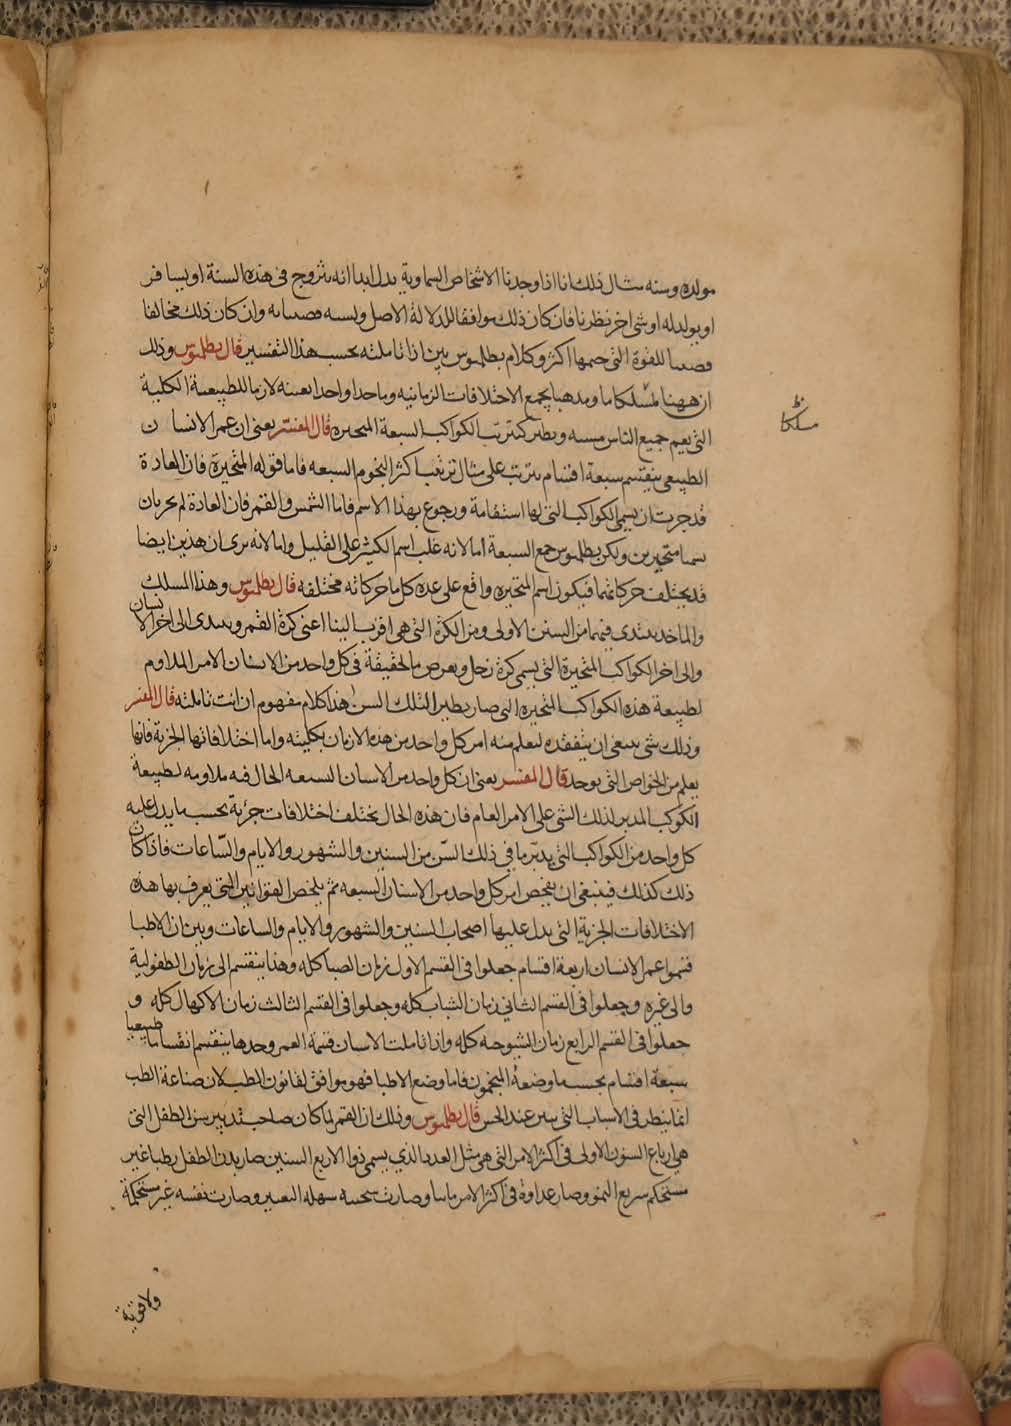 مولده وسنه مثال ذلك انا اذا وجدنا الاشخاص السماوية تدل ابدا انه يتزوج فى هذه السنة او يسافر
او يولد له او شى اخر نظرنا فان كان ذلك موافقا للدلالة الاصل وان كان ذلك مخالفا
للقوة التى اكثر وكلام بطلميوس بين اذا تاملته بحسب هذا التفسير قال بطلميوس وذلك
ان ههنا مسلكا ما ومذهبا يجمع الاختلافات الزمانيه وماخذا واحدا بعينه لازما للطبيعة الكلية
مسلكا
التى يعم جميع الناس ويطرد كترتيب الكواكب السبعة المتحيره قال المفسر يعنى ان عمر الانسان
الطبيعى ينقسم سبعة اقسام يترتب على مثال ترتيب اكثر النجوم السبعه فاما قوله المتحيرة فان العادة
قد جرت ان يسمى الكواكب التى لها استقامة ورجوع بهذا الاسم فاما الشمس والقمر فان العادة لم بجريان
يسما متحيرين ولكن بطلميوس جمع السبعة اما لانه غلب اسم الكثير على القليل واما لانه يرى ان هذين ايضا
قد يختلف حركاتهما فيكون اسم المتحيره واقع على عدة كل ما حركاته مختلفه قال بطلميوس وهذا المسلك
والماخذ يبتدى فيهما من السنن الاولى ومن الكرة التى هى اقرب الينا اعنى كرة القمر الى اخر الانسان
والى اخر الكواكب المتحيرة التى يسمى كرة زحل ويعرض بالحقيقة فى كل واحد من الاسنان الامر الملاوم
لطبيعة هذه الكواكب المتحيره التى صار نظير السن هذا كلام مفهوم ان انت تاملته قال المفسر
وذلك شى ينبغى ان يتفقده ليعلم منه امر كل واحد من هذه الازمان بكليته واما اختلافاتها الجزية فانها
يعلم من الخواص التى يوجد قال المفسر يعنى ان كل واحد من الاسنان السبعه الحال فيه ملاومه لطبيعة
الكوكب المدبر لذلك الشى على الامر العام فان هذه الحال يختلف اختلافات جزية بحسب ما يدل عليه
كل واحد من الكواكب التى يدبر ما فى ذلك السن من السنين والشهور والايام والساعات فاذا كان
ذلك كذلك فينبغى ان يفحص امر كل واحد من الاسنان السبعه ثم يلخص القوانين التى يعرف بها هذه
الاختلافات الجزية التى يدل عليها اصحاب السنين والشهور والايام والساعات وبين ان الاطبا
قسموا عمر الانسان اربعة اقسام جعلوا فى القسم الاول زمان الصبا كله وهذا ينقسم الى زمان الطفولية
والى غيره وجعلوا فى القسم الثانى زمان الشباب كله وجعلوا فى القسم الثالث زمان الاكهال كله و
جعلوا فى القسم الرابع زمان الشيوخه كله واذا تاملت الانسان قسمة العمر وحدها ينقسم انقساما طبيعيا
سبعة اقسام بحسب ما وضعه المنجمون فاما وضع الاطبا فهو موافق لقانون الطب لان صناعة الطب
انما ينظر فى الاسباب التى عند الحس قال بطلميوس وذلك ان القمر لما كان صاحب تدبير سن الطفل التى
هى ارباع السنون الاولى فى اكثر الامر التى هى مثل العدد الذى يسمى ذوا الاربع السنين صار بدن الطفل رطبا غير
مستحكم سريع النمو وصار غداوه فى اكثر الامر وصارت سهله التغيير وصارت نفسه غير مستحكمة
ولا قوية